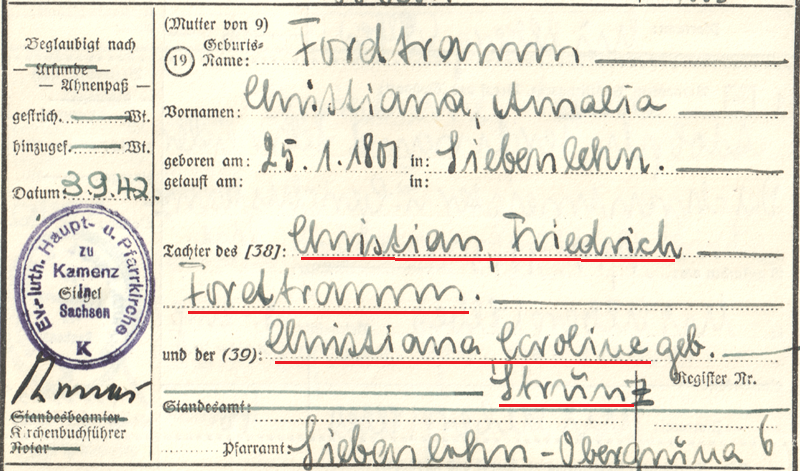 (Mutter von 9)
Beglaubigt nach
Urkunde
— Ahnenpaß —
19 Geburts-Name: Fordtramm
Vornamen: Christiana, Amalia
gestrich. Wt.
hinzugef. Wt.
geboren am: 25.1.1801 in: Siebenlehn.
getauft am: in:
Datum: 3.9.42.
Tochter des [38]: Christian, Friedrich
Fordtramm.
Ev.-luth. Haupt- u. Pfarrkirche
zu
Kamenz
in
Siegel
Sachsen
K
und der (39): Christiana, Caroline geb.
Strünz
Register Nr.
Standesbeamter
Kirchenbuchführer
Notar
Standesamt:
Pfarramt: Siebenlehn-Obergruna 6